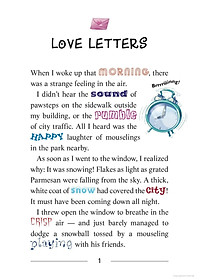 LOVE LETTERS
When I woke up that MORNING, there
was a strange feeling in the air.
Brrrriiiing!
I didn't hear the sound of
pawsteps on the sidewalk outside
my building, or the rumble
of city traffic. All I heard was the
HAPPY laughter of mouselings
in the park nearby.
As soon as I went to the window, I realized
why: It was snowing! Flakes as light as grated
Parmesan were falling from the sky. A thick,
white coat of snow had covered the CITY!
It must have been coming down all night.
I threw open the window to breathe in the
CRISP air — and just barely managed to
dodge a snowball tossed by a mouseling
playing with his friends.
1